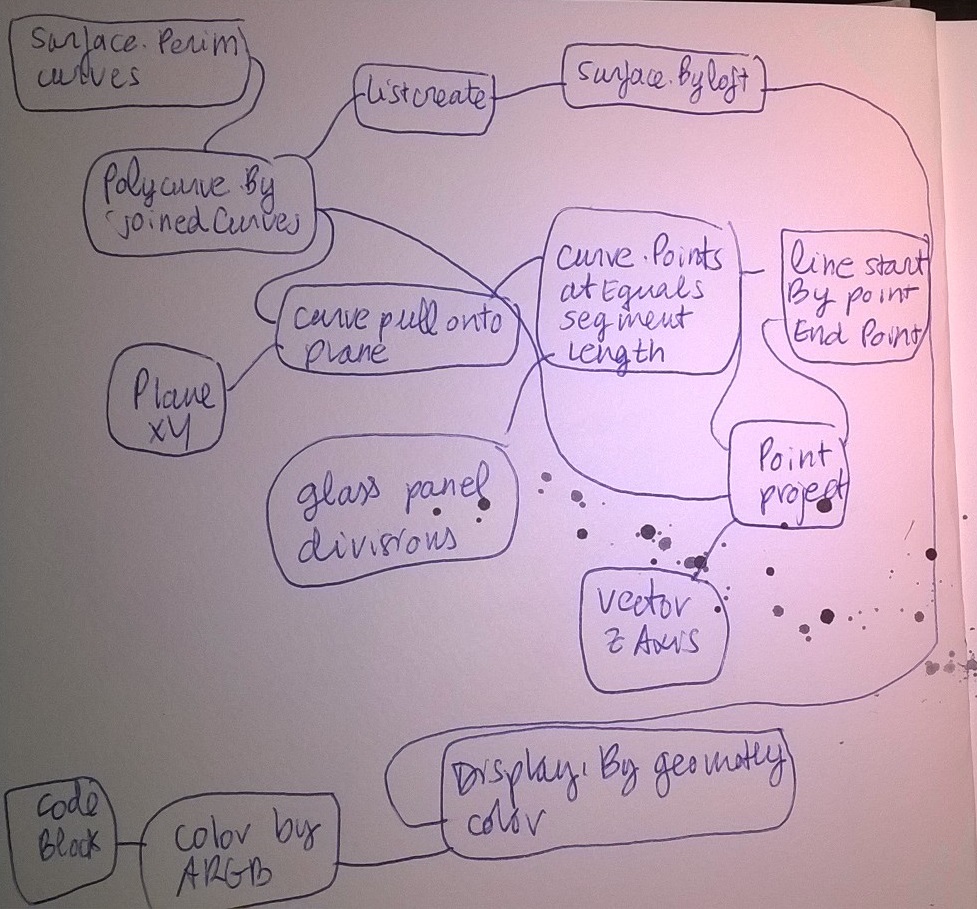 Surface.Perim
curves
listcreate
Surface.Byloft
Polycurve.By
joined Curves
curve.Points
at Equals
segment
Length
line start
By point
End Point
curve pull onto
plane
Plane
XY
Point
project
glass panel
divisions
vector
Z Axis
Display. By geometry
color
Code
Block
Color by
ARGB